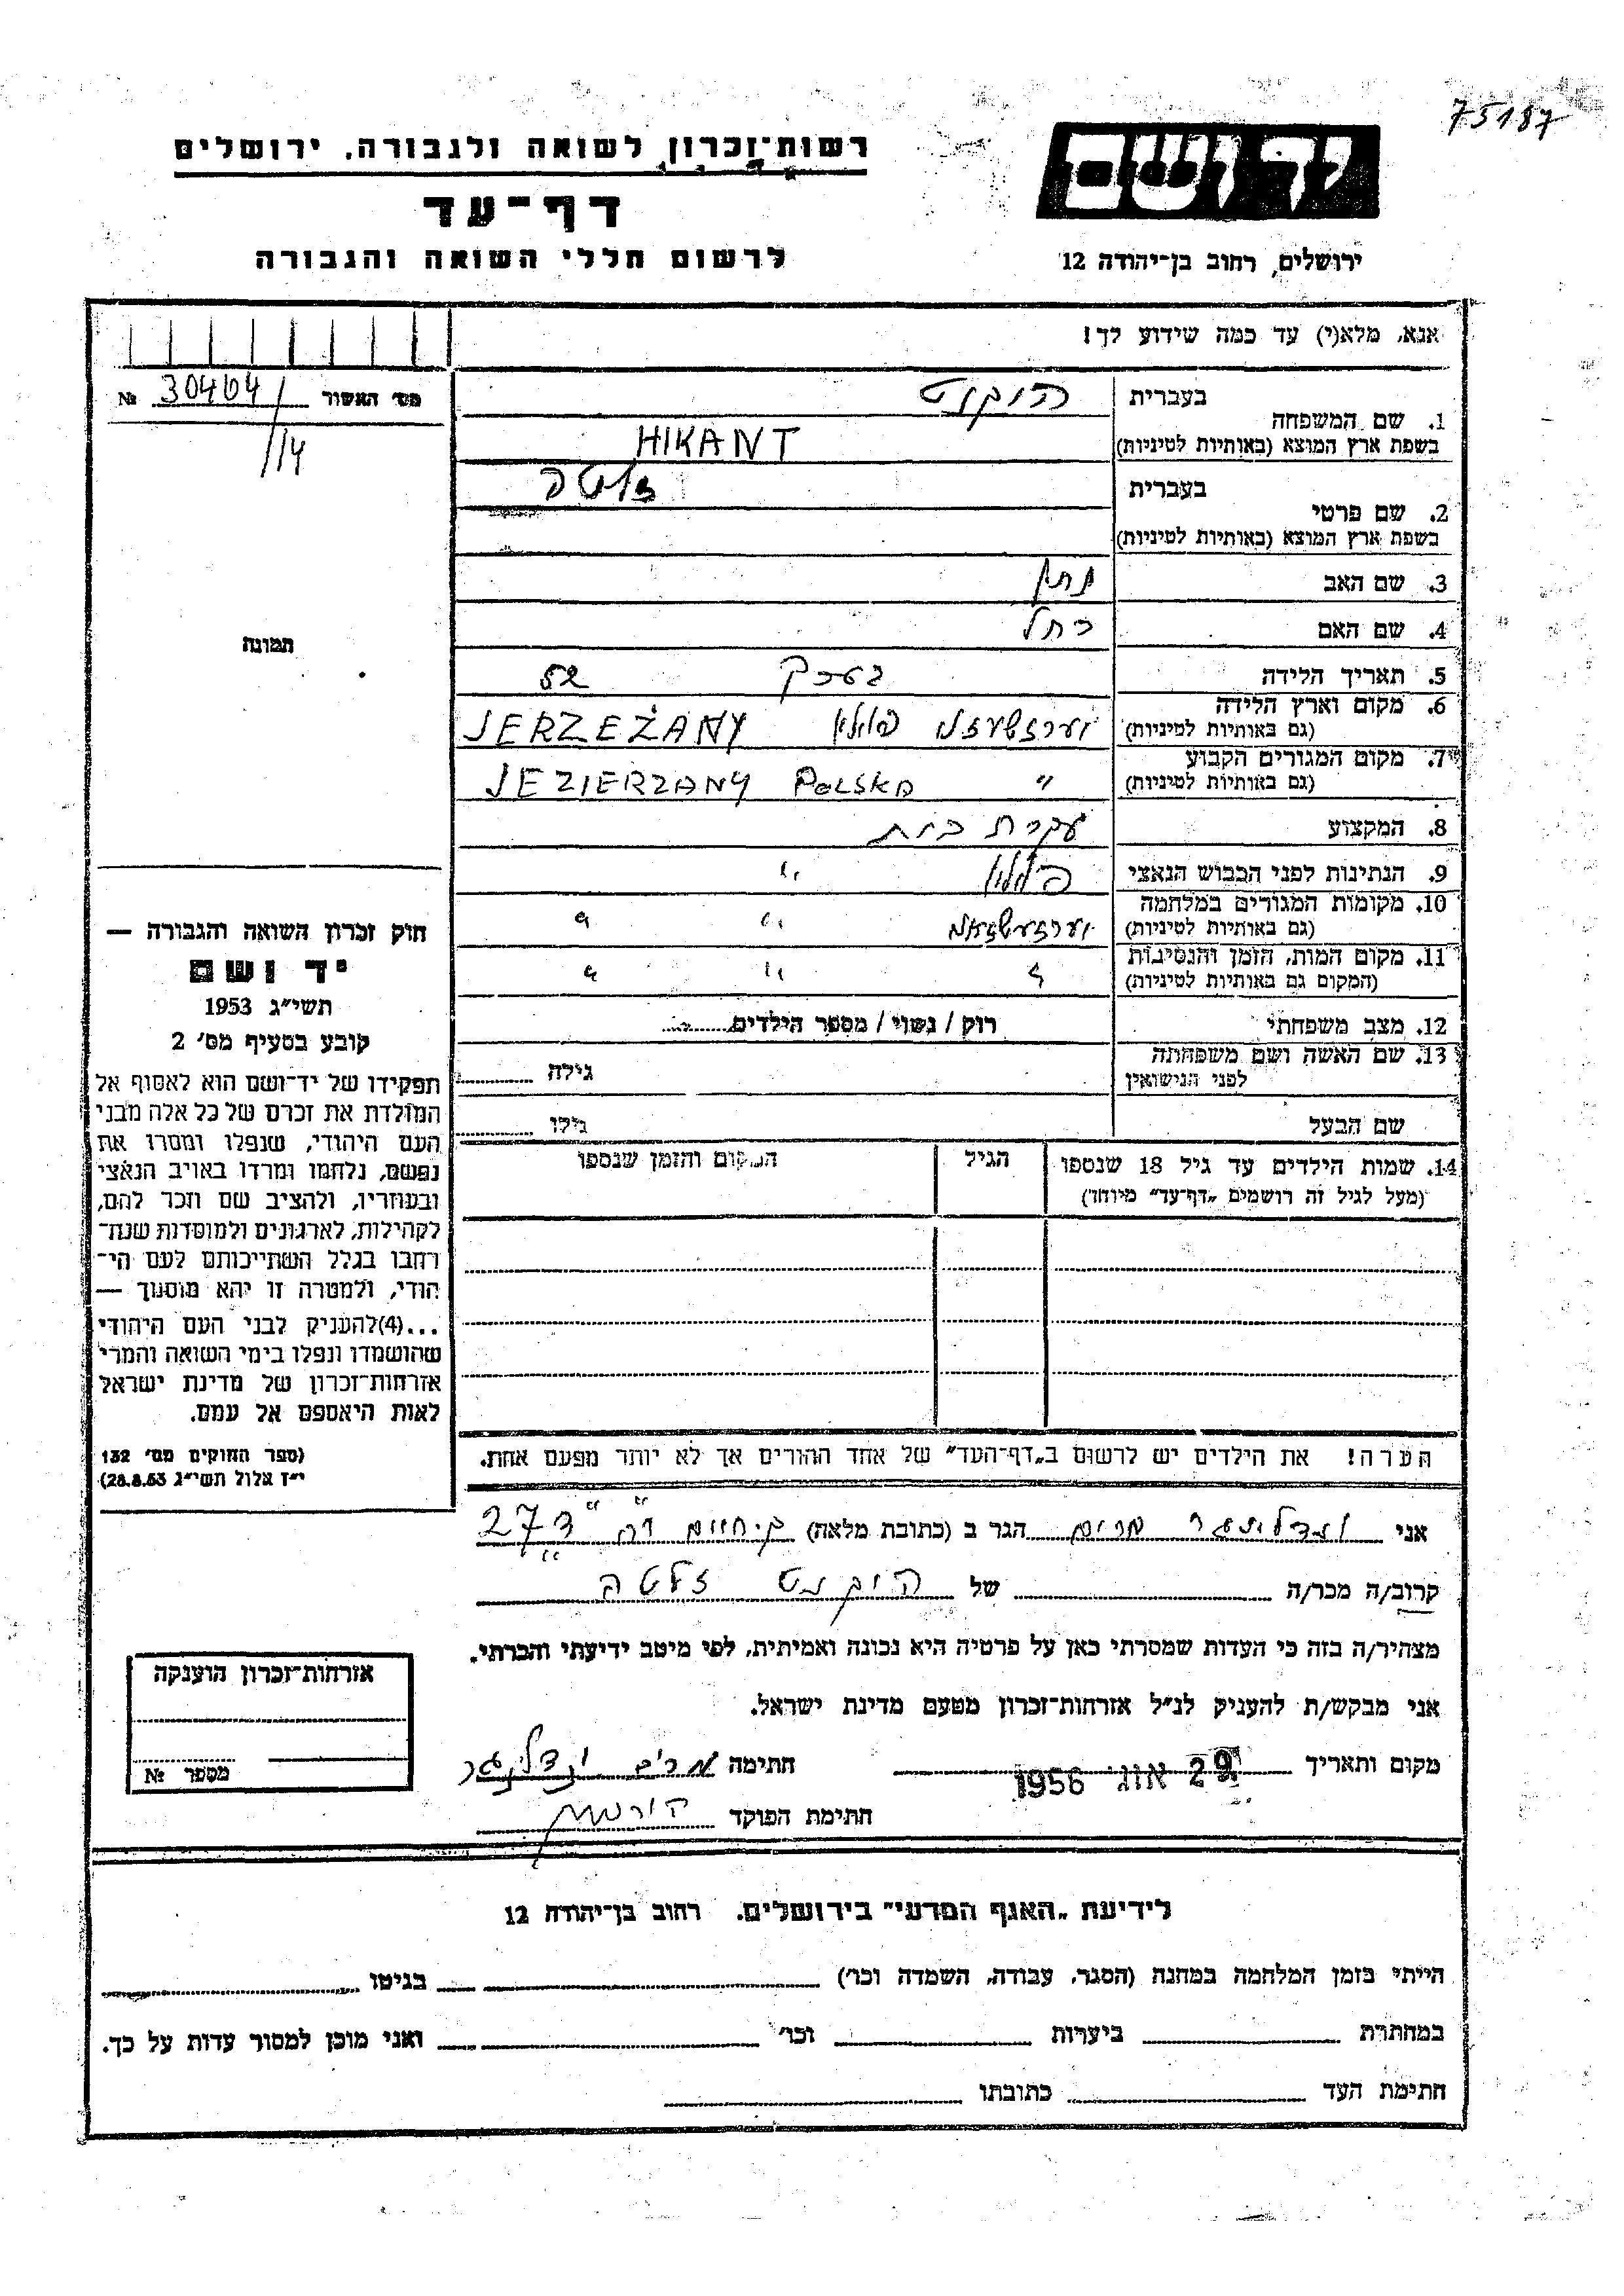 75187
רשות־זכרון לשואה ולגבורה, ירושלים
דף־עד
לרשום חללי השואה והגבורה
יד ושם
ירושלים, רחוב בן־יהודה 12
אנא, מלא(י) עד כמה שידוע לך!
מס׳ האשור 30404 №
/14
1. שם המשפחה
בעברית היקנט
בשפת ארץ המוצא (באותיות לטיניות) HIKANT
2. שם פרטי
בעברית זלטה
בשפת ארץ המוצא (באותיות לטיניות)
3. שם האב נתן
4. שם האם רחל
5. תאריך הלידה בערך 52
6. מקום וארץ הלידה
(גם באותיות לטיניות) פולין JERZEŻANY
7. מקום המגורים הקבוע
(גם באותיות לטיניות) " JEZIERZANY POLSKA
8. המקצוע עקרת בית
9. הנתינות לפני הכבוש הנאצי פולין "
10. מקומות המגורים במלחמה
(גם באותיות לטיניות) " "
11. מקום המות, הזמן והנסיבות
(המקום גם באותיות לטיניות) " " "
12. מצב משפחתי רוק / נשוי / מספר הילדים
13. שם האשה ושם משפחתה
לפני הנישואין גילה
שם הבעל גילו
14. שמות הילדים עד גיל 18 שנספו הגיל המקום והזמן שנספו
(מעל לגיל זה רושמים „דף־עד” מיוחד)
הערה! את הילדים יש לרשום ב„דף־העד” של אחד ההורים אך לא יותר מפעם אחת.
תמונה
חוק זכרון השואה והגבורה —
יד ושם
תשי״ג 1953
קובע בסעיף מס׳ 2
תפקידו של יד־ושם הוא לאסוף אל
המולדת את זכרם של כל אלה מבני
העם היהודי, שנפלו ומסרו את
נפשם, נלחמו ומרדו באויב הנאצי
ובעוזריו, ולהציב שם וזכר להם,
לקהילות, לארגונים ולמוסדות שנח־
רבו בגלל השתייכותם לעם הי־
הודי, ולמטרה זו יהא מוסמך —
...(4)להעניק לבני העם היהודי
שהושמדו ונפלו בימי השואה והמרי
אזרחות־זכרון של מדינת ישראל
לאות היאספם אל עמם.
(ספר החוקים מס׳ 132
י״ז אלול תשי״ג 28.8.53)
אני מרים הגר ב (כתובת מלאה) ק. חיים 27
קרוב/ה מכר/ה של היקנט זלטה
מצהיר/ה בזה כי העדות שמסרתי כאן על פרטיה היא נכונה ואמיתית, לפי מיטב ידיעתי והכרתי.
אני מבקש/ת להעניק לנ״ל אזרחות־זכרון מטעם מדינת ישראל.
מקום ותאריך 29 אוג׳ 1956 חתימה מרים
חתימת הפוקד
אזרחות־זכרון הוענקה
מספר №
לידיעת „האגף המדעי” בירושלים, רחוב בן־יהודה 12
הייתי בזמן המלחמה במחנה (הסגר, עבודה, השמדה וכו׳) בגיטו
במחתרת ביערות וכו׳ ואני מוכן למסור עדות על כך.
חתימת העד כתובתו